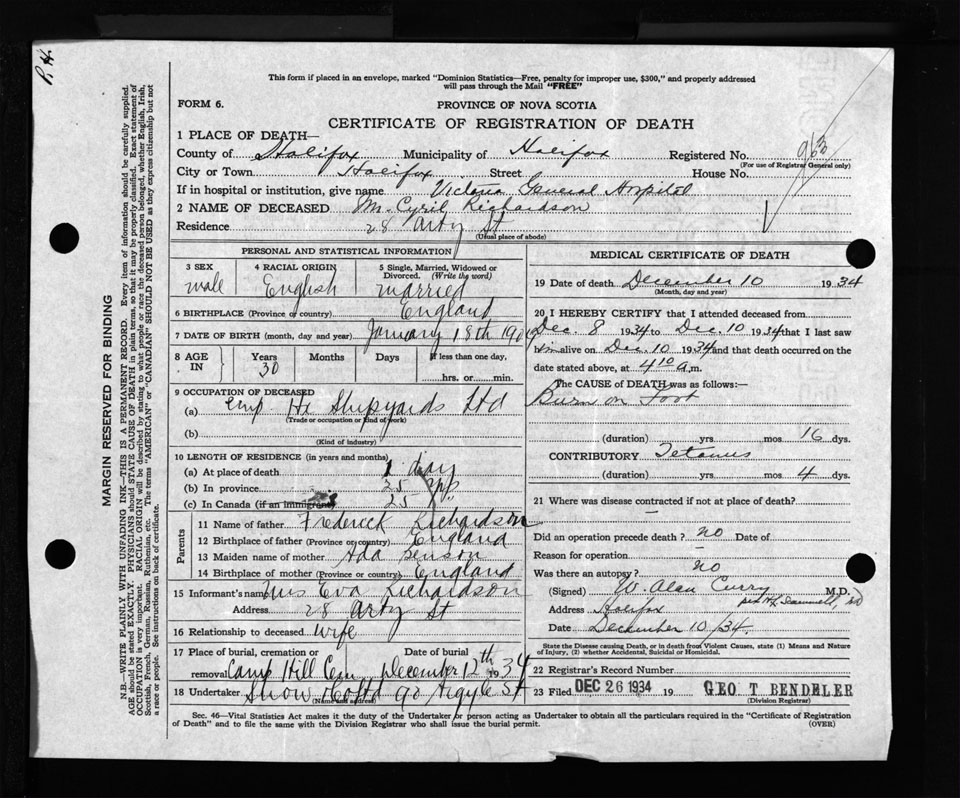 P. H.
This form if placed in an envelope, marked "Dominion Statistics—Free, penalty for improper use, $300," and properly addressed
will pass through the Mail "FREE"
FORM 6.
PROVINCE OF NOVA SCOTIA
CERTIFICATE OF REGISTRATION OF DEATH
1 PLACE OF DEATH—
County of Halifax Municipality of Halifax Registered No. 963
(For use of Registrar General only)
City or Town Halifax Street House No.
If in hospital or institution, give name Victoria General Hospital
2 NAME OF DECEASED Mr Cyril Richardson
Residence 28 Arty St
(Usual place of abode)
PERSONAL AND STATISTICAL INFORMATION
3 SEX 4 RACIAL ORIGIN 5 Single, Married, Widowed or
Divorced. (Write the word)
male English married
6 BIRTHPLACE (Province or country) England
7 DATE OF BIRTH (month, day and year) January 18th
8 AGE IN Years Months Days If less than one day,
30 hrs. or min.
9 OCCUPATION OF DECEASED
(a) emp Hx Shipyards Ltd
(Trade or occupation or kind of work)
(b)
(Kind of industry)
10 LENGTH OF RESIDENCE (in years and months)
(a) At place of death 1 day
(b) In province 25
(c) In Canada (if an immigrant) 25
Parents
11 Name of father Frederick Richardson
12 Birthplace of father (Province or country) England
13 Maiden name of mother Ada Benson
14 Birthplace of mother (Province or country) England
15 Informant's name Mrs Eva Richardson
Address 28 Arty St
16 Relationship to deceased wife
17 Place of burial, cremation or removal Date of burial
Camp Hill Cem December 12th 1934
18 Undertaker Snow & Co Ltd 90 Argyle St
(Name and address)
MEDICAL CERTIFICATE OF DEATH
19 Date of death December 10 1934
(Month, day and year)
20 I HEREBY CERTIFY that I attended deceased from
Dec. 8 1934 to Dec. 10 1934 that I last saw
him alive on Dec 10 1934 and that death occurred on the
date stated above, at 4 10 a.m.
The CAUSE OF DEATH was as follows:—
Burn on Foot
(duration) yrs mos 16 dys.
CONTRIBUTORY Tetanus
(duration) yrs mos 4 dys.
21 Where was disease contracted if not at place of death?
Did an operation precede death? no Date of
Reason for operation —
Was there an autopsy? no
(Signed) W. Alan Curry M.D.
per
Address Halifax
Date December 10/34.
State the Disease causing Death, or in death from Violent Causes, state (1) Means and Nature
of Injury, (2) whether Accidental, Suicidal or Homicidal.
22 Registrar's Record Number
23 Filed DEC 26 1934 19 GEO T BENDELER
(Division Registrar)
Sec. 46—Vital Statistics Act makes it the duty of the Undertaker or person acting as Undertaker to obtain all the particulars required in the "Certificate of Registration
of Death" and to file the same with the Division Registrar who shall issue the burial permit. (OVER)
MARGIN RESERVED FOR BINDING
N.B.—WRITE PLAINLY WITH UNFADING INK—THIS IS A PERMANENT RECORD. Every item of information should be carefully supplied.
AGE should be stated EXACTLY. PHYSICIANS should STATE CAUSE OF DEATH in plain terms, so that it may be properly classified. Exact statement of
OCCUPATION is very important. RACIAL ORIGIN will be described by stating to what people or race the deceased person belonged, whether English, Irish,
Scottish, French, German, Russian, Ruthenian, etc. The terms "AMERICAN" or "CANADIAN" SHOULD NOT BE USED as they express citizenship but not
a race or people. See instructions on back of certificate.